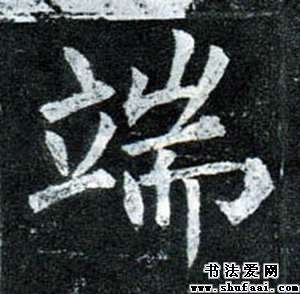 端
书法爱网
www.shufaai.com